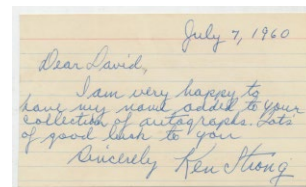 July 7, 1960
Dear David,
I am very happy to
have my name added to your
collection of autographs. Lots
of good luck to you
Sincerely Ken Strong